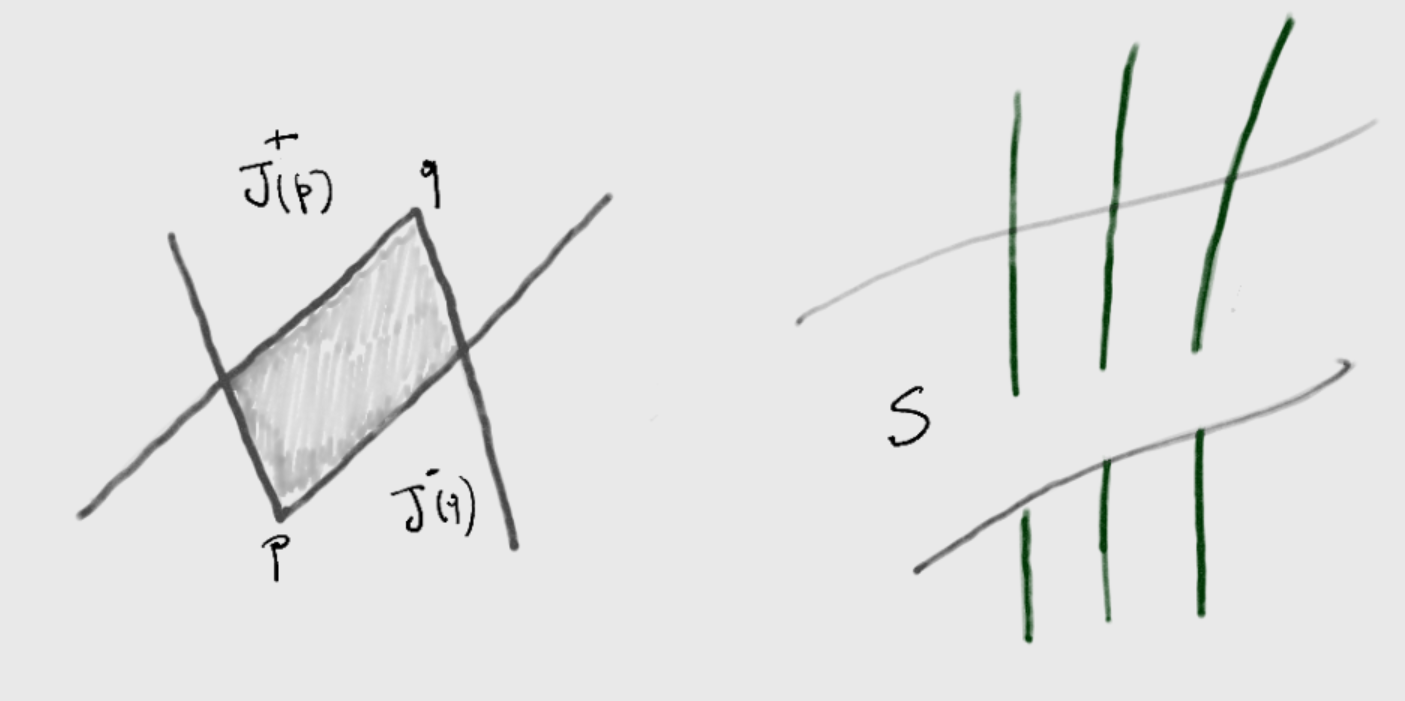 J⁺(p)
q
J⁻(q)
p
S